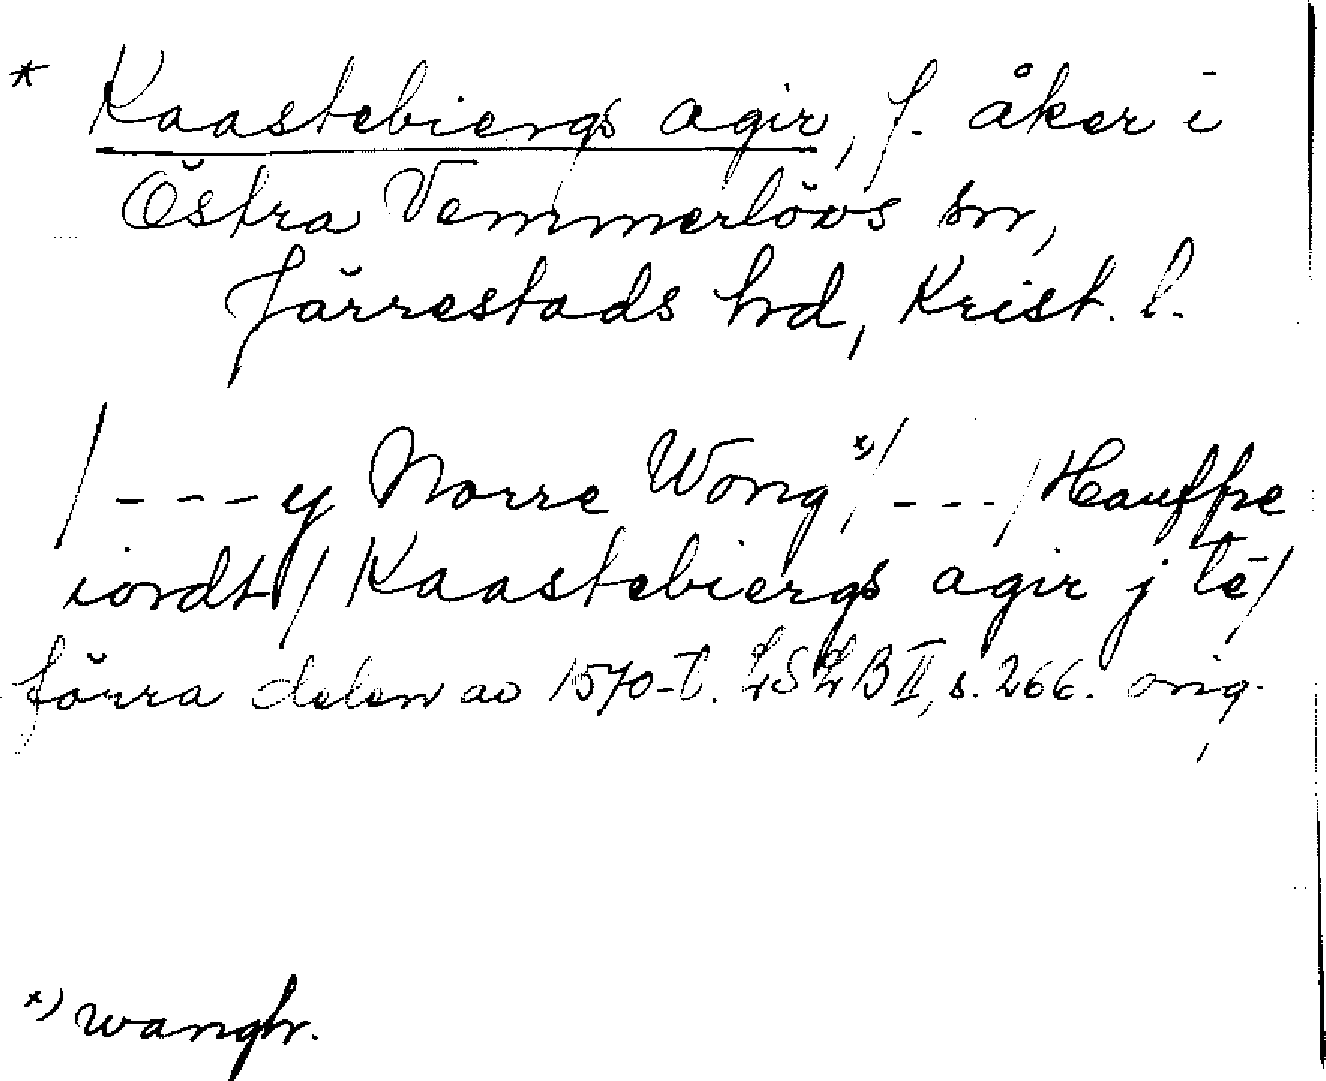 * Kaastebiergs agir, f. åker i
Östra Vemmerlövs sn,
Järrestads hd, Krist. l.
/ - - - y Norre Wong x) / - - - / Hauffre
iordt / Kaastebiergs agir j tē /
förra delen av 1570-t. LSLB II, s. 266. orig.
x) wangh.